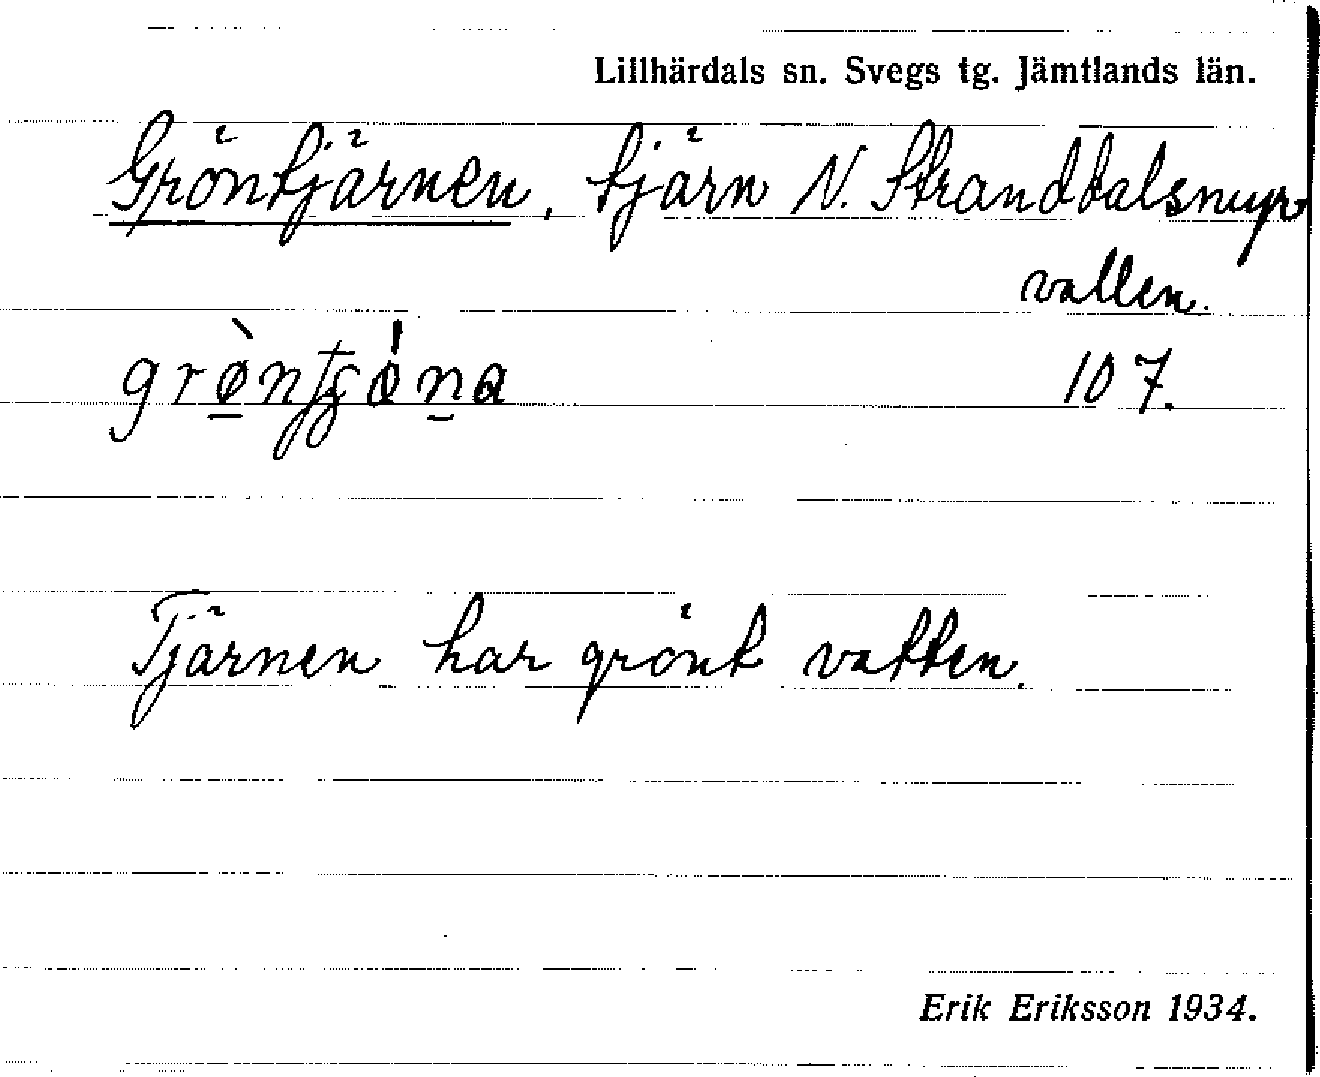 Lillhärdals sn. Svegs tg. Jämtlands län.
Gröntjärnen, tjärn N. Stranddalsmyr
vallen.
107.
Tjärnen har grönt vatten.
Erik Eriksson 1934.